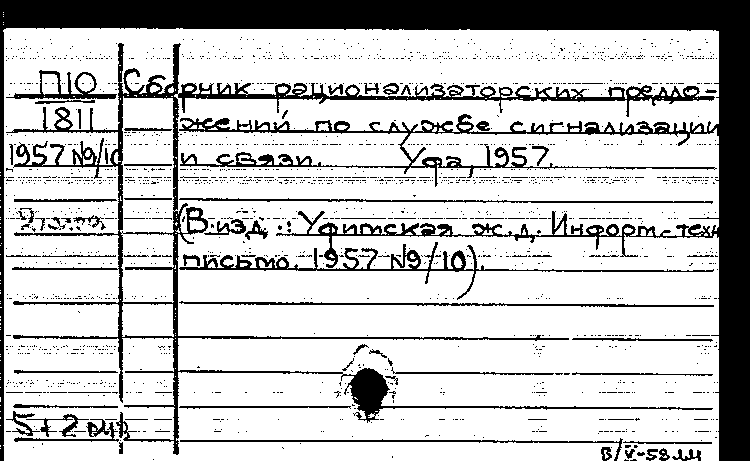 П10 Сборник рационализаторских предло-
1811 жений по службе сигнализации
1957 №9/10 и связи. Уфа, 1957.
(В изд.: Уфимская ж.д. Информ.-техн
письмо. 1957 №9/10).
5+2
8/V-58